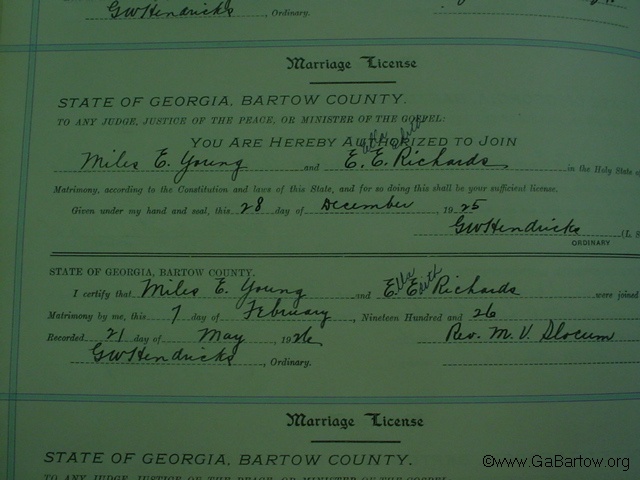 GWHendricks, Ordinary.
Marriage License
STATE OF GEORGIA, BARTOW COUNTY.
TO ANY JUDGE, JUSTICE OF THE PEACE, OR MINISTER OF THE GOSPEL:
YOU ARE HEREBY AUTHORIZED TO JOIN
Ella Edith
Miles E. Young and E. E. Richards in the Holy State of
Matrimony, according to the Constitution and laws of this State, and for so doing this shall be your sufficient license.
Given under my hand and seal, this 28 day of December, 1925
GWHendricks (L. S
ORDINARY
STATE OF GEORGIA, BARTOW COUNTY.
I certify that Miles E. Young and Ella Edith Richards were joined
Matrimony by me, this 7 day of February, Nineteen Hundred and 26
Recorded 21 day of May, 1926 Rev. M. V. Slocum
GWHendricks, Ordinary.
Marriage License
STATE OF GEORGIA, BARTOW COUNTY.
TO ANY JUDGE, JUSTICE OF THE PEACE, OR MINISTER OF THE GOSPEL
©www.GaBartow.org